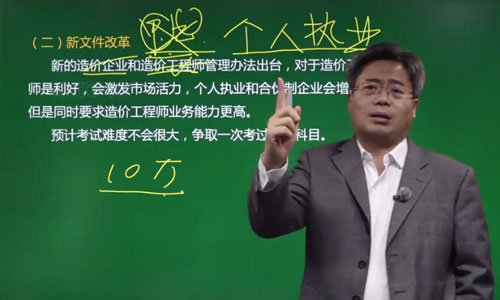 （二）新文件改革
个人执业
新的造价企业和造价工程师管理办法出台，对于造价
师是利好，会激发市场活力，个人执业和合伙制企业会增
但是同时要求造价工程师业务能力更高。
预计考试难度不会很大，争取一次考过
科目。
10万